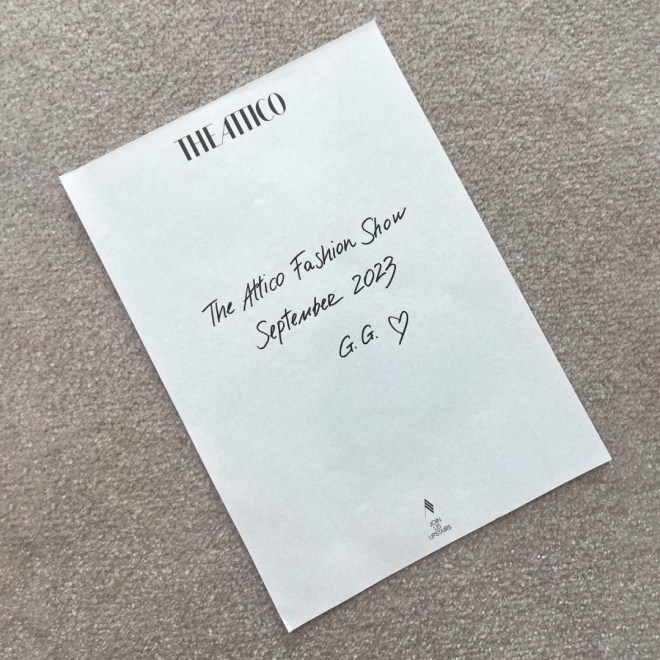 THE ATTICO
The Attico Fashion Show
September 2023
G.G. ♡
JOIN
US
UPSTAIRS